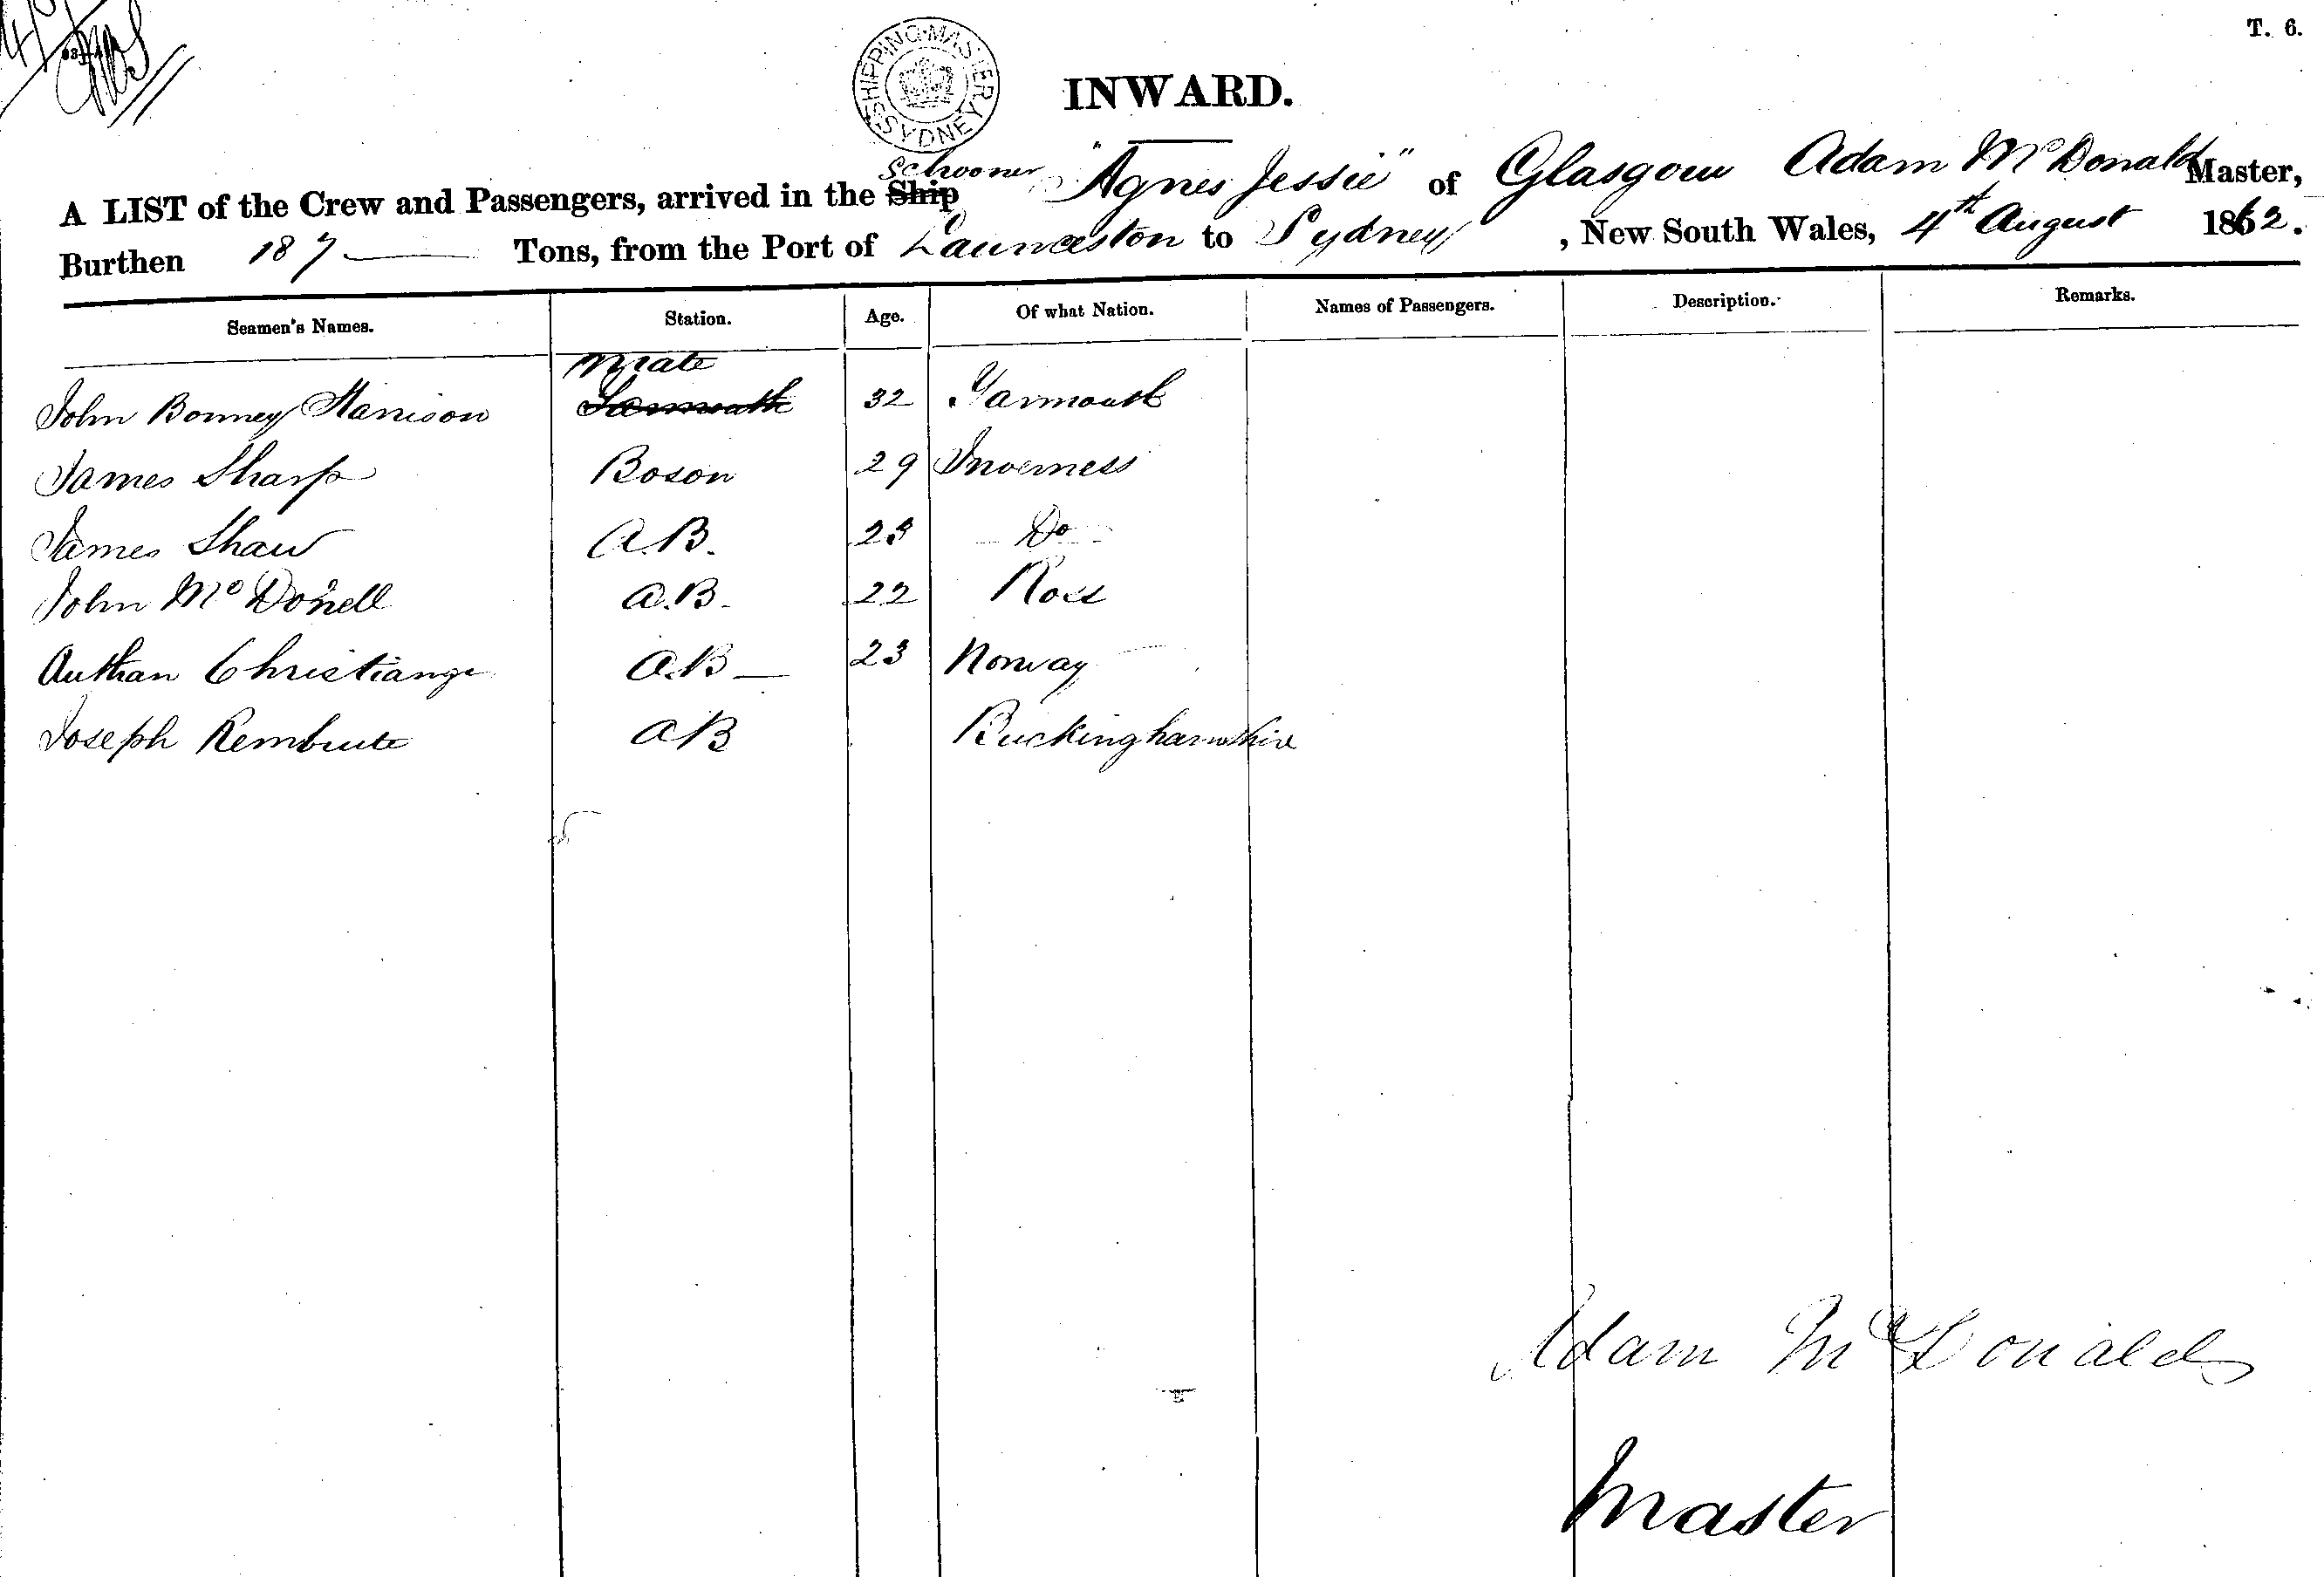 T. 6.
SHIPPING MASTER SYDNEY
INWARD.
A LIST of the Crew and Passengers, arrived in the Ship Schooner "Agnes Jessie" of Glasgow Adam McDonald Master,
Burthen 187 Tons, from the Port of Launceston to Sydney, New South Wales, 4th August 1862.
Seamen's Names. Station. Age. Of what Nation. Names of Passengers. Description. Remarks.
Mate
John Bonney Harrison 32 Yarmouth
James Sharp Boson 29 Inverness
James Shaw A.B. 23 Do
John McDonell A.B. 22 Ross
Christiange A.B 23 Norway
Joseph AB Buckinghamshire
Adam McDonald
Master